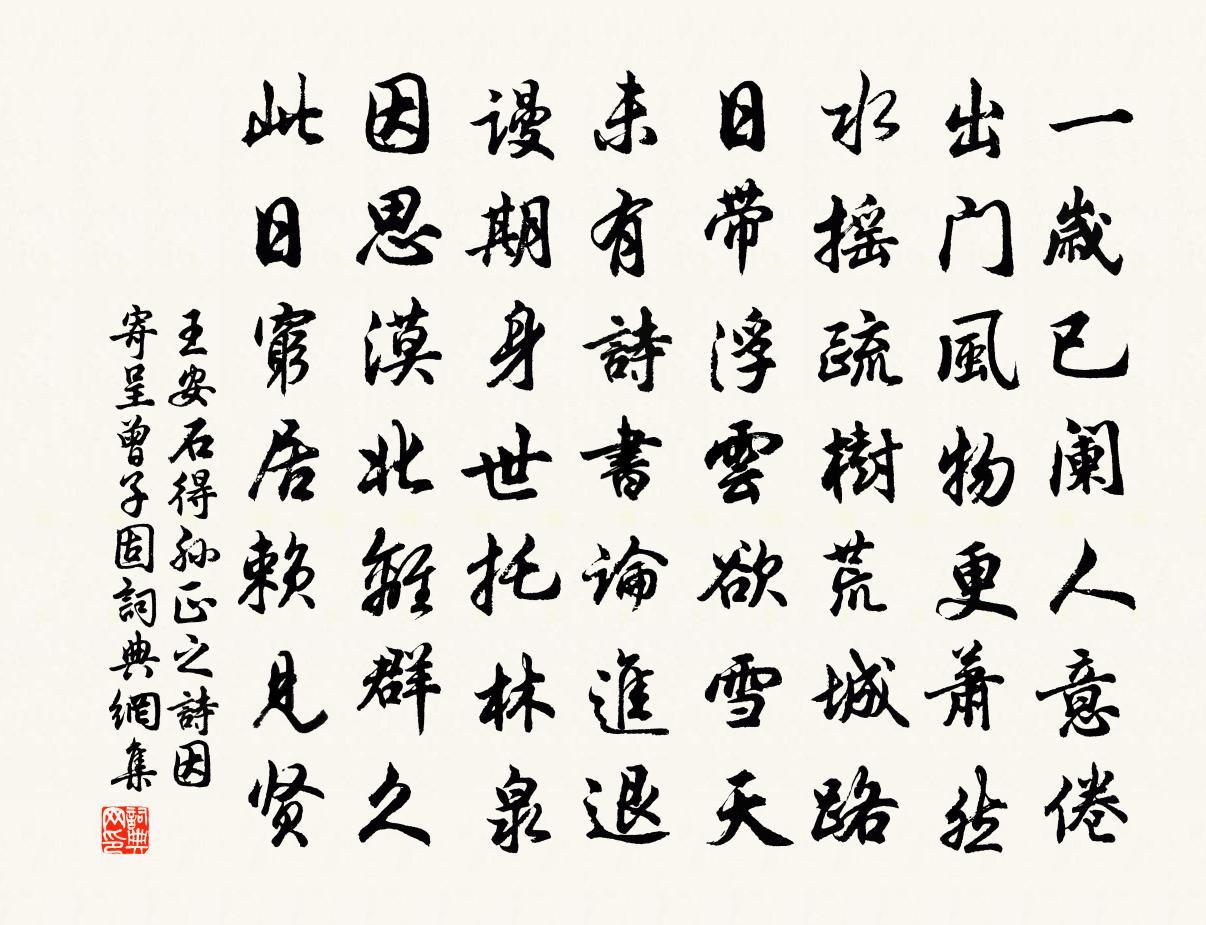 一歲已阑人意倦
出门風物更蕭然
水摇疏樹荒城路
日带浮雲欲雪天
未有詩書論進退
謾期身世托林泉
因思漠北離群久
此日窮居赖見贤
王安石得孙正之詩因
寄呈曾子固詞典網集
詞典
网印